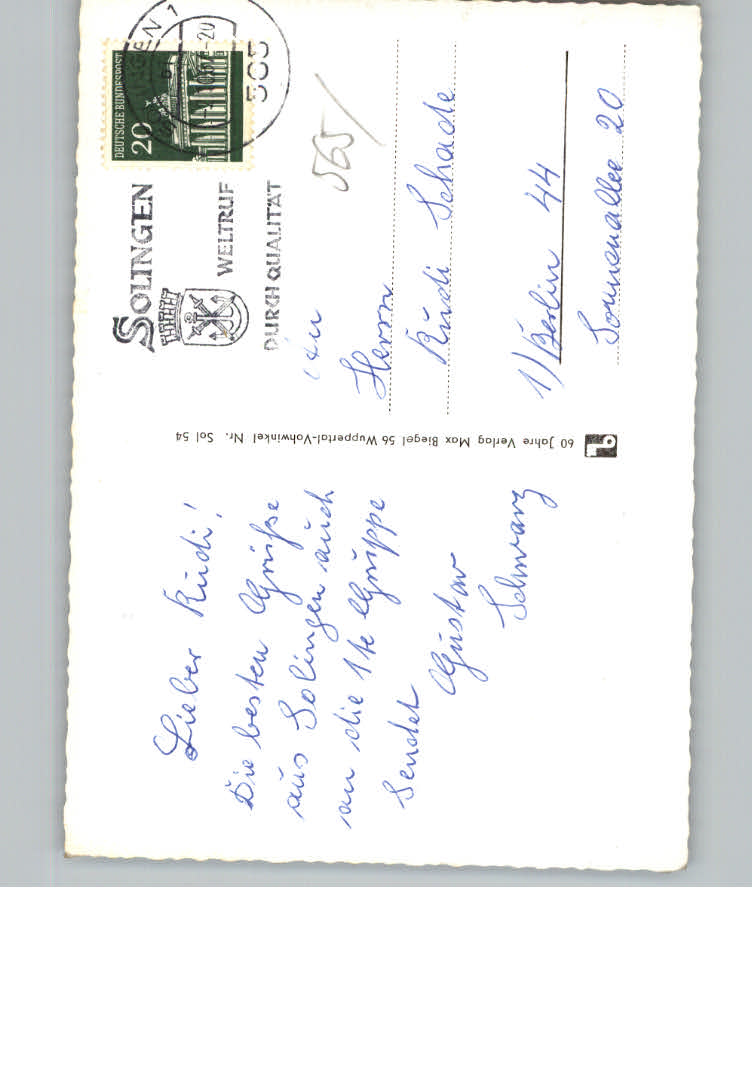 Lieber Rudi!
Die besten Grüße
aus Solingen auch
an die 1te Gruppe
Sendet
Gustav
Schwarz
60 Jahre Verlag Max Biegel 56 Wuppertal-Vohwinkel Nr. Sol 54
DEUTSCHE BUNDESPOST
20
565
SOLINGEN
WELTRUF
DURCH QUALITÄT
565/
An
Herrn
Rudi Schade
1) Berlin 44
Sonnenallee 20